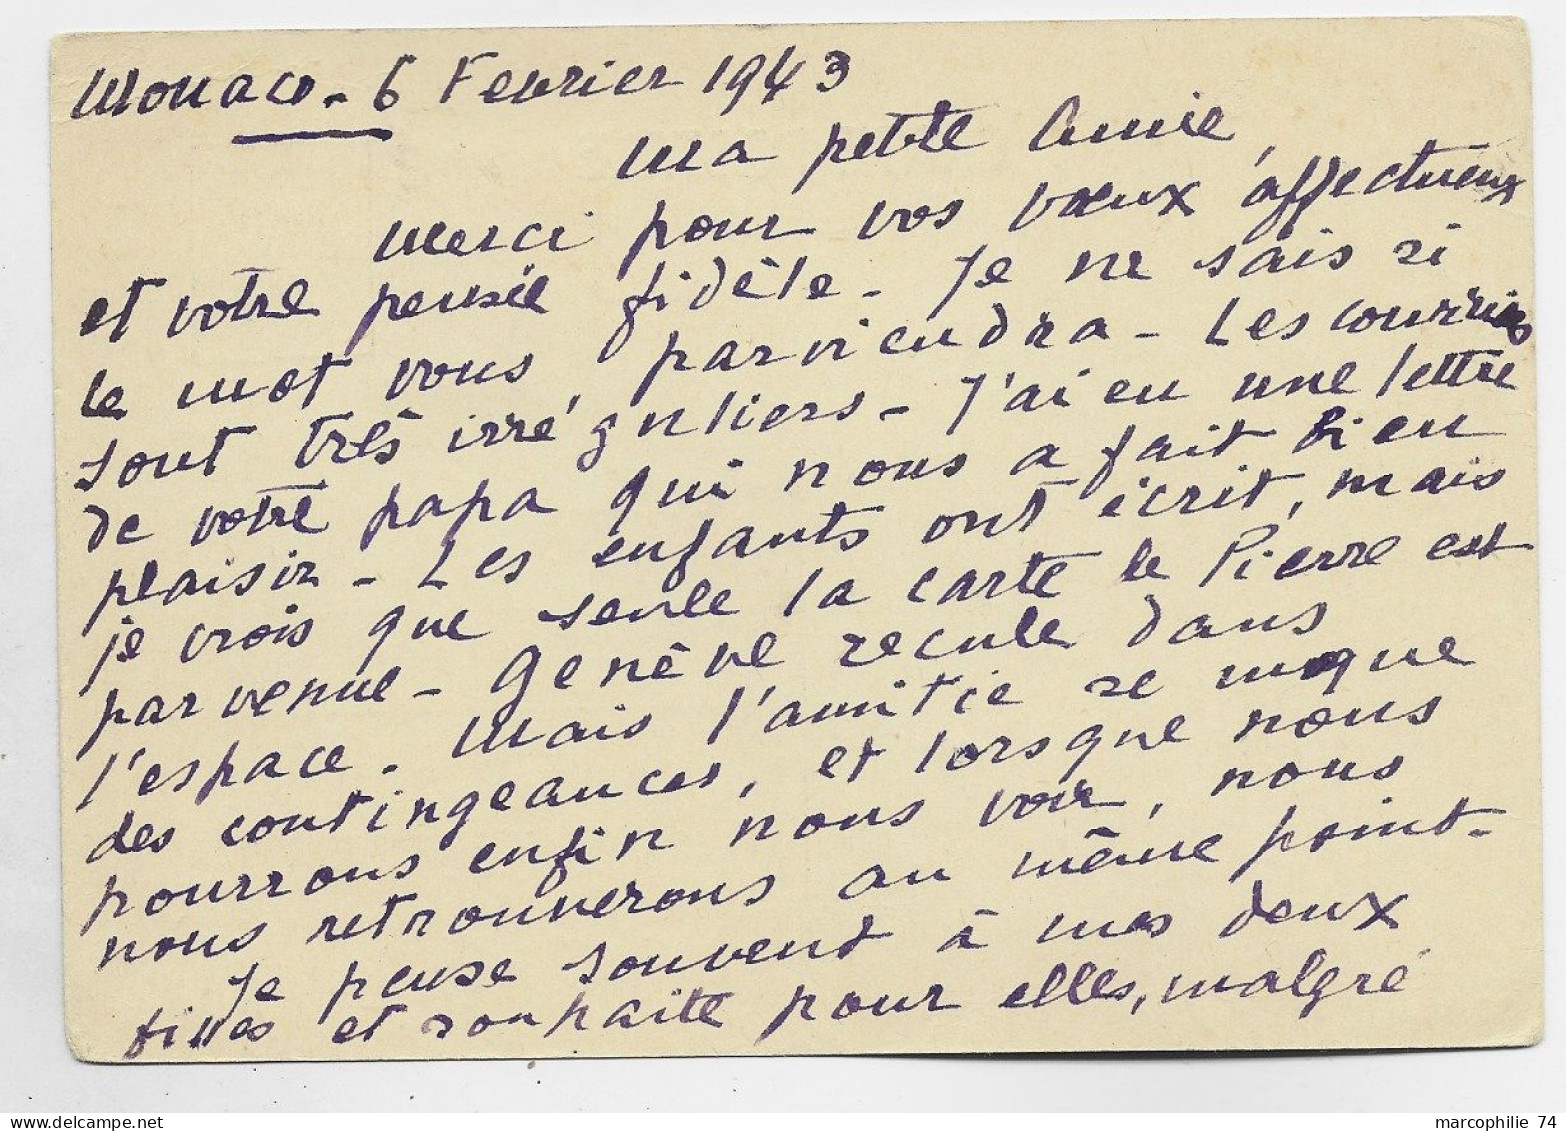 Monaco - 6 Fevrier 1943
ma petite Amie,
merci pour vos vœux affectueux
et votre pensée fidèle - Je ne sais si
le mot vous parviendra - Les courriers
sont très irréguliers - J'ai eu une lettre
de votre papa qui nous a fait bien
plaisir - Les enfants ont écrit, mais
je crois que seule la carte de Pierre est
parvenue - Genève recule dans
l'espace - Mais l'amitié se moque
des contingeances, et lorsque nous
pourrons enfin nous voir, nous
nous retrouverons au même point -
Je pense souvent à mes deux
filles et souhaite pour elles, malgré
marcophilie 74